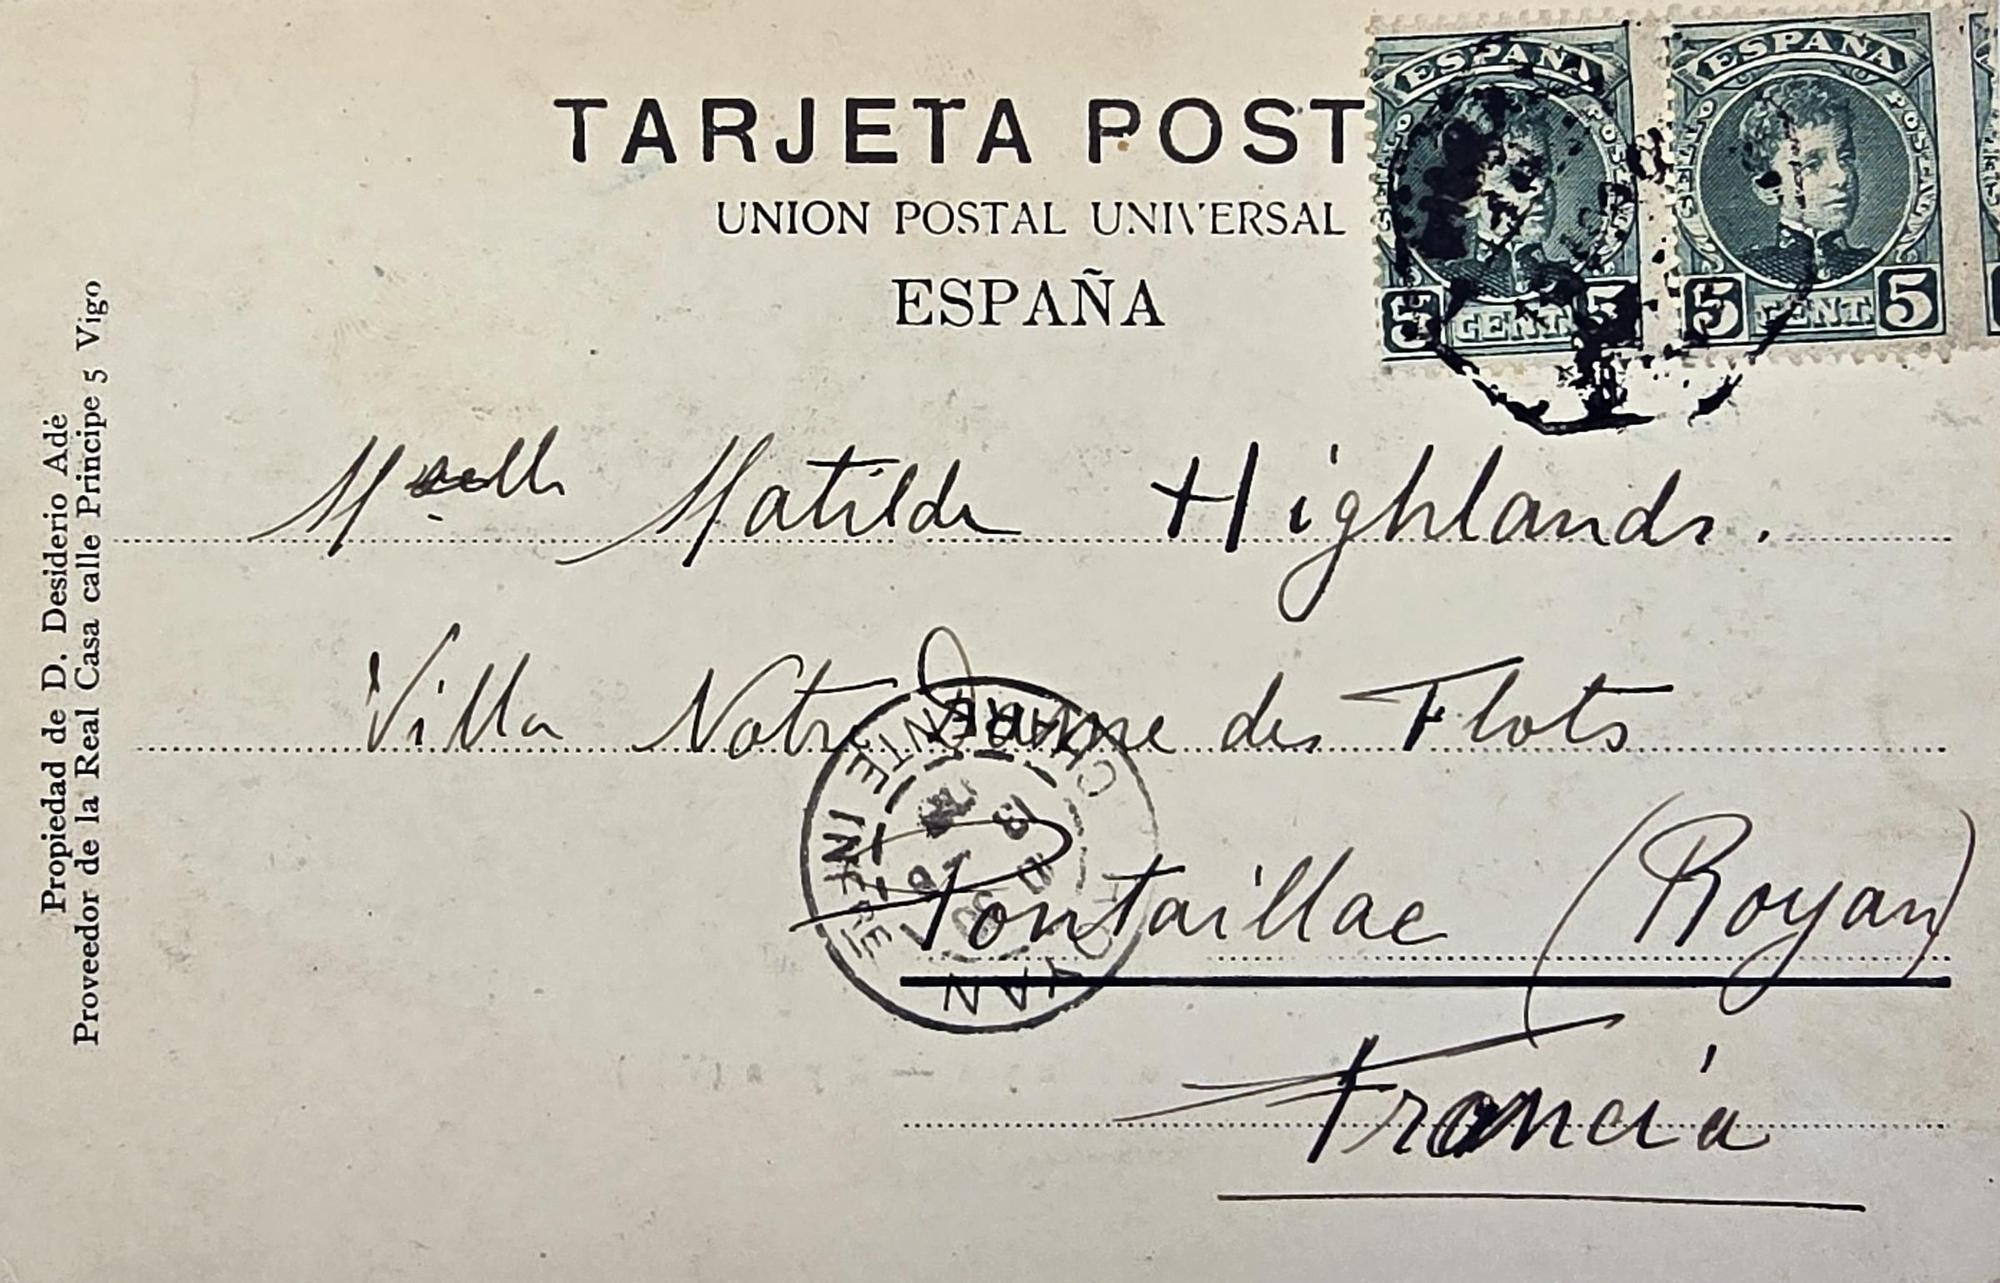 TARJETA POST
UNION POSTAL UNIVERSAL
ESPAÑA
ESPAÑA
SELLO POSTAL
5 CENT. 5
ESPAÑA
SELLO POSTAL
5 CENT. 5
Propiedad de D. Desiderio Adé
Proveedor de la Real Casa calle Principe 5 Vigo
Melle Matilde Highlands.
Villa Notre Dame des Flots
Pontaillac (Royan)
Francia
CHARENTE INFRE
YAN